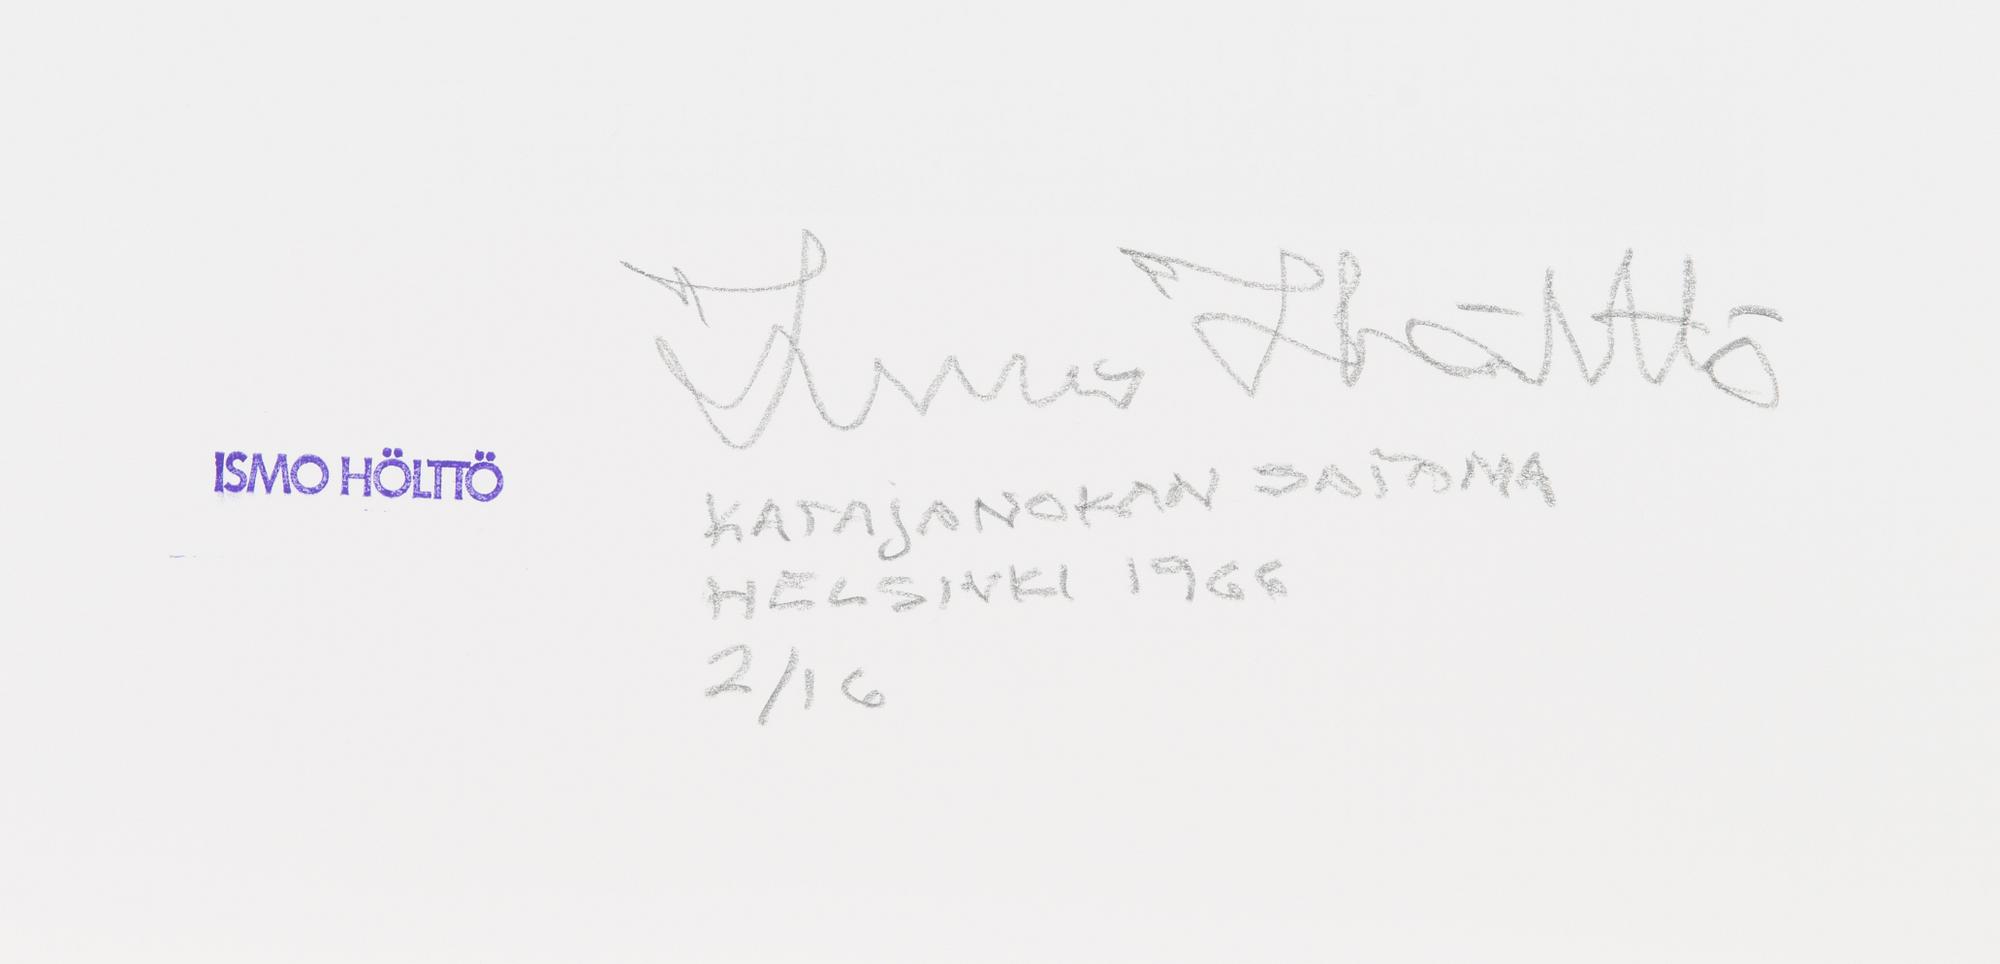 Ismo Hölttö
ISMO HÖLTTÖ
KATAJANOKAN SATAMA
HELSINKI 1966
2/16